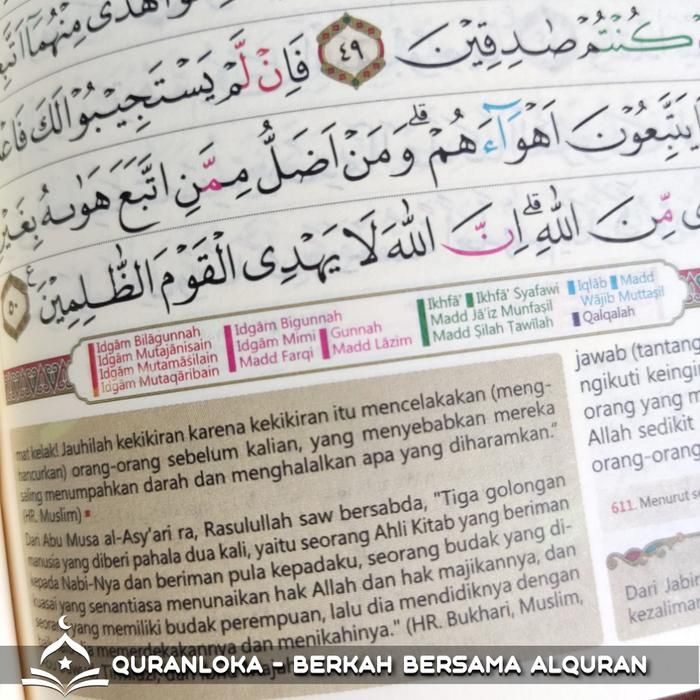 كُنْتُمْ صٰدِقِيْنَ ٤٩
فَاِنْ لَّمْ يَسْتَجِيْبُوْا لَكَ
يَتَّبِعُوْنَ اَهْوَاۤءَهُمْۗ وَمَنْ اَضَلُّ مِمَّنِ اتَّبَعَ هَوٰىهُ بِغَيْرِ
مِّنَ اللّٰهِ ۗاِنَّ اللّٰهَ لَا يَهْدِى الْقَوْمَ الظّٰلِمِيْنَ ࣖ ٥٠
Idgām Bilāgunnah
Idgām Mutajānisain
Idgām Mutamāṡilain
Idgām Mutaqāribain
Idgām Bigunnah
Idgām Mimi Gunnah
Madd Farqi Madd Lāzim
Ikhfā' Ikhfā' Syafawi
Madd Jā'iz Munfaṣil
Madd Ṣilah Tawilah
Iqlāb Madd
Wājib Muttaṣil
Qalqalah
mat kelak! Jauhilah kekikiran karena kekikiran itu mencelakakan (meng-
hancurkan) orang-orang sebelum kalian, yang menyebabkan mereka
saling menumpahkan darah dan menghalalkan apa yang diharamkan."
(HR. Muslim)
Dari Abu Musa al-Asy'ari ra, Rasulullah saw bersabda, "Tiga golongan
manusia yang diberi pahala dua kali, yaitu seorang Ahli Kitab yang beriman
kepada Nabi-Nya dan beriman pula kepadaku, seorang budak yang di-
kuasai yang senantiasa menunaikan hak Allah dan hak majikannya, dan
seorang yang memiliki budak perempuan, lalu dia mendidiknya dengan
memerdekakannya dan menikahinya." (HR. Bukhari, Muslim,
jawab (tantang
ngikuti keingi
orang yang m
Allah sedikit
orang-orang
611. Menurut se
Dari Jabir
kezaliman
QURANLOKA - BERKAH BERSAMA ALQURAN